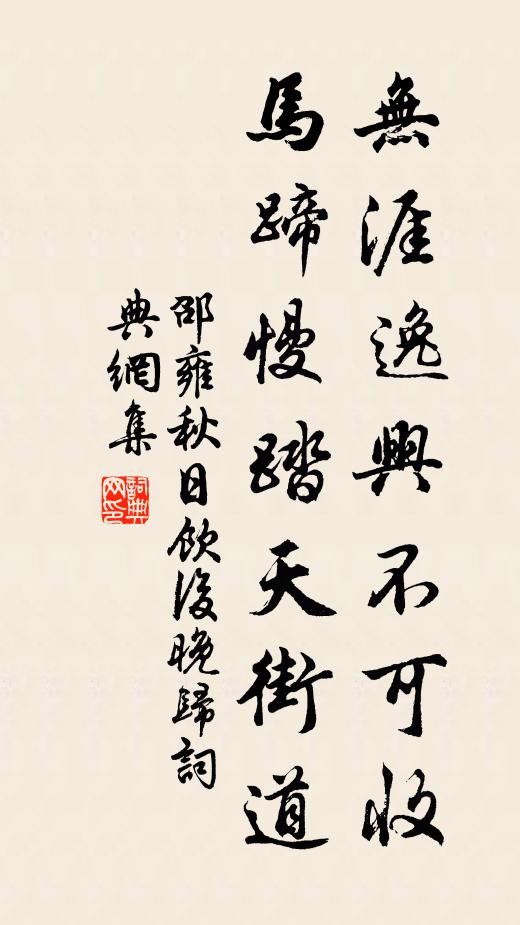 無涯逸興不可收
馬蹄慢踏天街道
邵雍秋日飲後晚歸詞
典網集
詞典網印